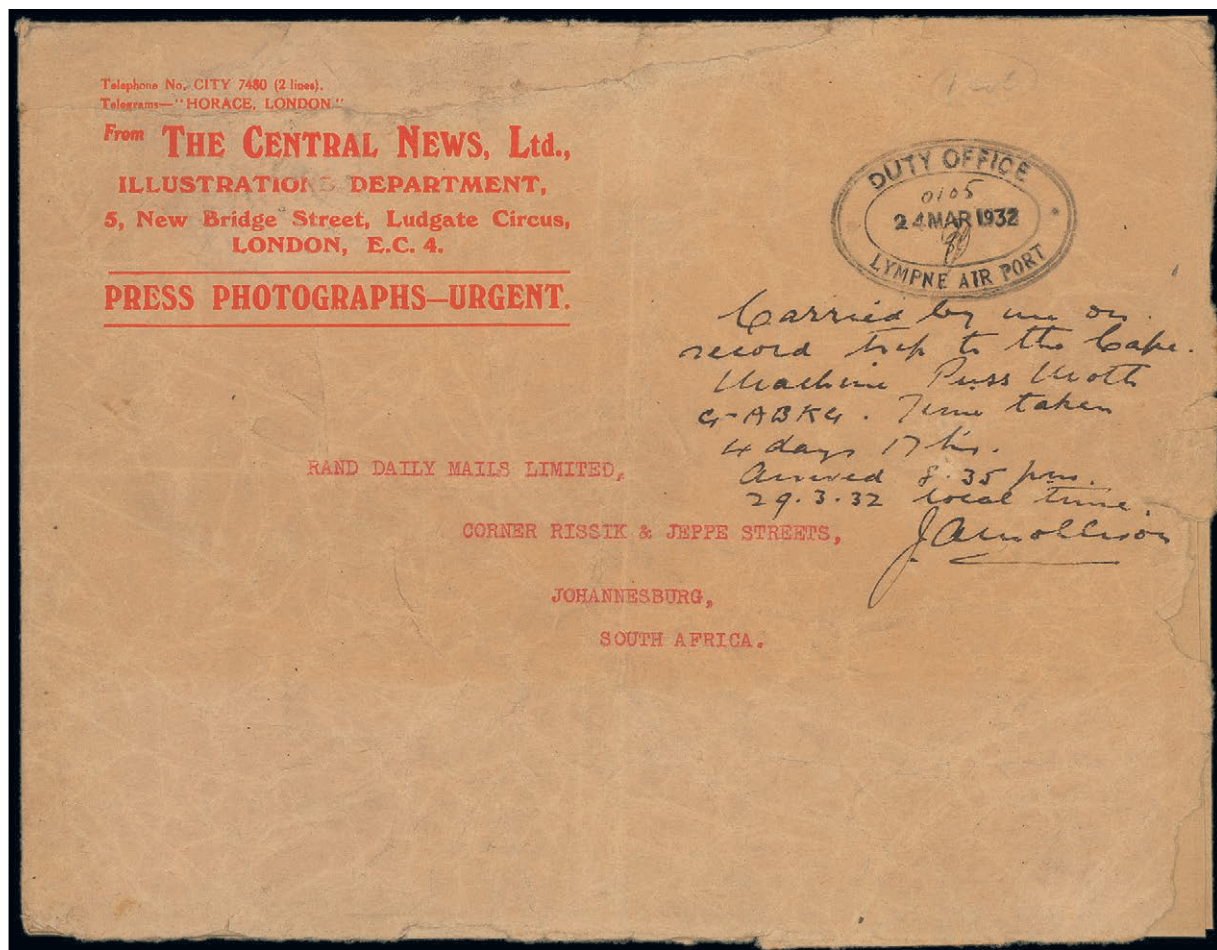 Telephone No. CITY 7480 (2 lines).
Telegrams—"HORACE, LONDON."
From THE CENTRAL NEWS, Ltd.,
ILLUSTRATIONS DEPARTMENT,
5, New Bridge Street, Ludgate Circus,
LONDON, E.C. 4.
PRESS PHOTOGRAPHS—URGENT.
DUTY OFFICE
0105
24 MAR 1932
LYMPNE AIR PORT
Carried by me on
record trip to the Cape.
Machine Puss Moth
G-ABKG. Time taken
4 days 17 hrs.
Arrived 8.35 pm.
29.3.32 local time.
JAMollison
RAND DAILY MAILS LIMITED,
CORNER RISSIK & JEPPE STREETS,
JOHANNESBURG,
SOUTH AFRICA.